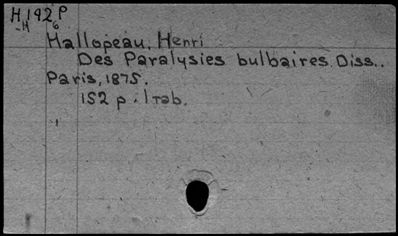 H 192 P
-H 6
Hallopeau, Henri
Des Paralysies bulbaires. Diss..
Paris, 1875.
152 p. 1 Tab.